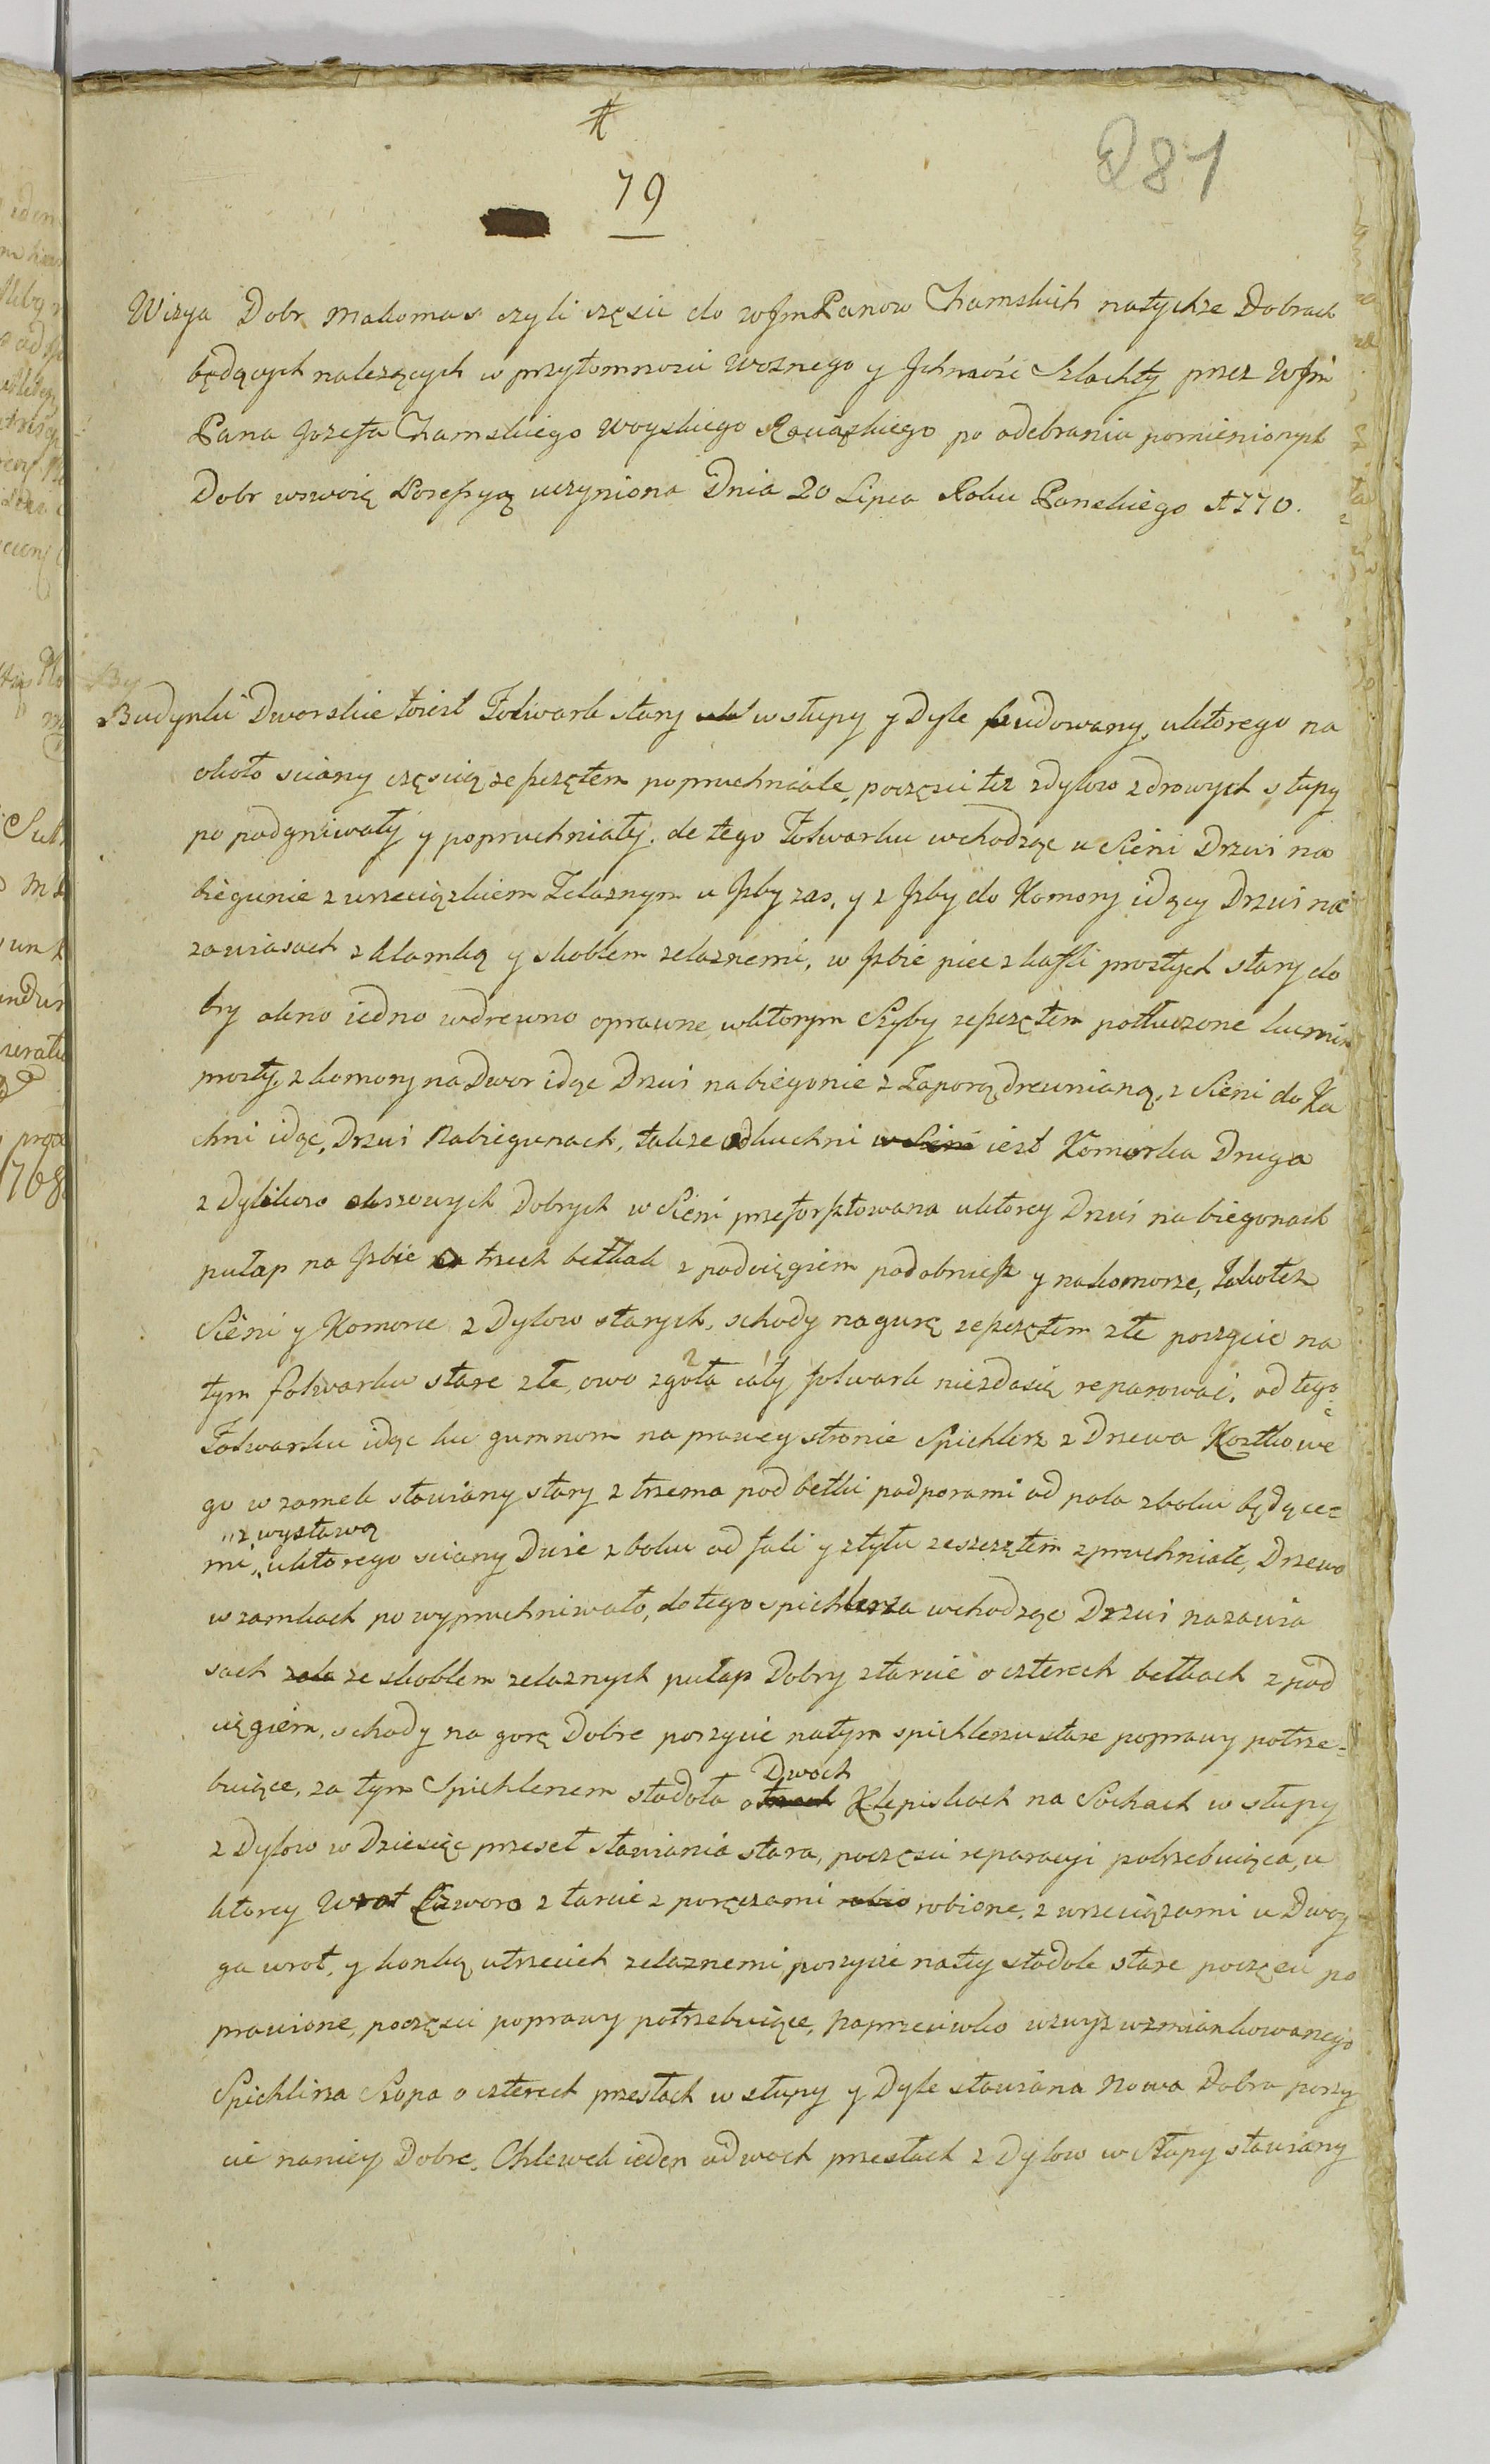 #
79
281
Wizya Dobr Makomas czyli częsci do WJm Panow Chamskich natychze Dobrach
będących nalezących w przytomnosci Woznego y Ichmość Szlachty przez WJm
Pana Jozefa Chamskiego Woyskiego Rawązkiego po odebraniu pomienionych
Dobr wswoią Possessyą uczyniona Dnia 20 Lipca Roku Panskiego 1770.
Budynki Dworskie toiest Folwark stary w słupy y Dyle budowany, uktorego na
około sciany częscią zeszczętem popruchniałe, poczęsci tez zdylow zdrowych słupy
po podgniwały y popruchniały. do tego Folwarku wchodząc u Sieni Drzwi na
biegunie z wrzeciązkiem Zelaznym u Izby zas, y z Izby do Komory idący Drzwi na
zawiasach z klamką y skoblem zelaznemi, w Izbie piec z kafli prostych stary do
bry okno iedno wdrewno oprawne, wktorym Szyby zeszczętem potłuczone kumin
prosty, z komory na Dwor idąc Drzwi na biegonie z Zaporą drewnianą, z Sieni do Ku
chni idąc, Drzwi Nabiegunach, takze odkuchni w Sieni iest Komorka Druga
z Dylikow olszowych Dobrych w Sieni przeforsztowana uktorey Drzwi na biegonach
pułap na Izbie o trzech belkach z podciągiem podobniesz y nakomorze, Takotez
Sieni y Komorce z Dylow starych, schody nagurę zeszczętem złe poszycie na
tym folwarku stare złe, owo zgoła cały folwark niezdasię reparować. od tego
Folwarku idąc ku gumnom na prawey stronie Spichlerz z Drzewa Kostkowe
go w zamek stawiany stary z trzema pod belki podporami od pola zboku będące=
z wystawą
mi, uktorego sciany Dwie zboku od fali y ztyłu zeszczętem zpruchniałe, Drzewo
w zamkach powypruchniwało, dotego spichlerza wchodząc Drzwi nazawia
sach zela ze skoblem zelaznych pułap Dobry ztarcic o czterech belkach z pod
ciągiem, schody na gorę Dobre poszycie natym spichlerzu stare poprawy potrze=
Dwoch
buiące, za tym Spichlerzem stodoła o trzech Klepiskach na Sochach w słupy
z Dylow w Dziesięc przeseł stawiania stara, poczęsci reparacyi potrzebuiąca, u
ktorey Wrot Czworo z tarcic z poręczami robio robione, z wrzeciązami u Dwoy
ga wrot, y honką utrzecich zelaznemi, poszycie natey stodole stare poczęsci po
prawione, poczęsci poprawy potrzebuiące, Naprzeciwko wzwyz wzmiankowanego
Spichlirza Szopa o czterech przesłach w słupy y Dyle stawiana Nowa Dobra poszy
cie naniey Dobre, Chlewek ieden odwoch przesłach z Dylow w Słupy stawiany